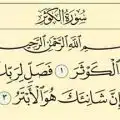 سُورَةُ الكَوْثَرِ
بِسْمِ اللَّهِ الرَّحْمَٰنِ الرَّحِيمِ
الْكَوْثَرَ ١ فَصَلِّ لِرَبِّكَ
إِنَّ شَانِئَكَ هُوَ الْأَبْتَرُ ٣